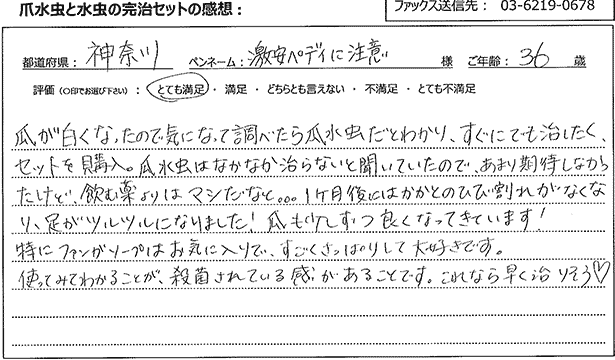 爪水虫と水虫の完治セットの感想： ファックス送信先： 03-6219-0678
都道府県： 神奈川 ペンネーム： 激安ペディに注意 様 ご年齢： 36 歳
評価（○印でお選び下さい）： とても満足 ・ 満足 ・ どちらとも言えない ・ 不満足 ・ とても不満足
爪が白くなったので気になって調べたら爪水虫だとわかり、すぐにでも治したく、
セットを購入。爪水虫はなかなか治らないと聞いていたので、あまり期待しなかっ
たけど、飲む薬よりはマシだなと…。1ヶ月後にはかかとのひび割れがなくな
り、足がツルツルになりました！爪も少しずつ良くなってきています！
特にファンガソープはお気に入りで、すごくさっぱりして大好きです。
使ってみてわかることが、殺菌されている感があることです。これなら早く治りそう♡